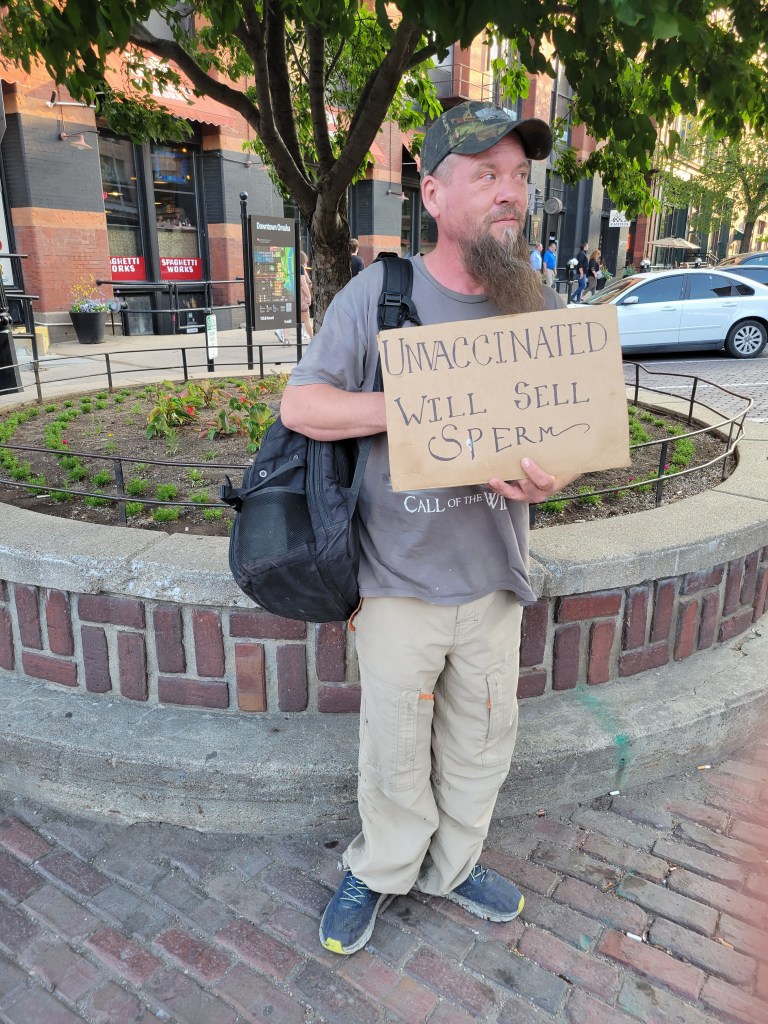 Downtown Omaha
SPAGHETTI
WORKS
SPAGHETTI
WORKS
UNVACCINATED
WILL SELL
SPERM
CALL OF THE WI